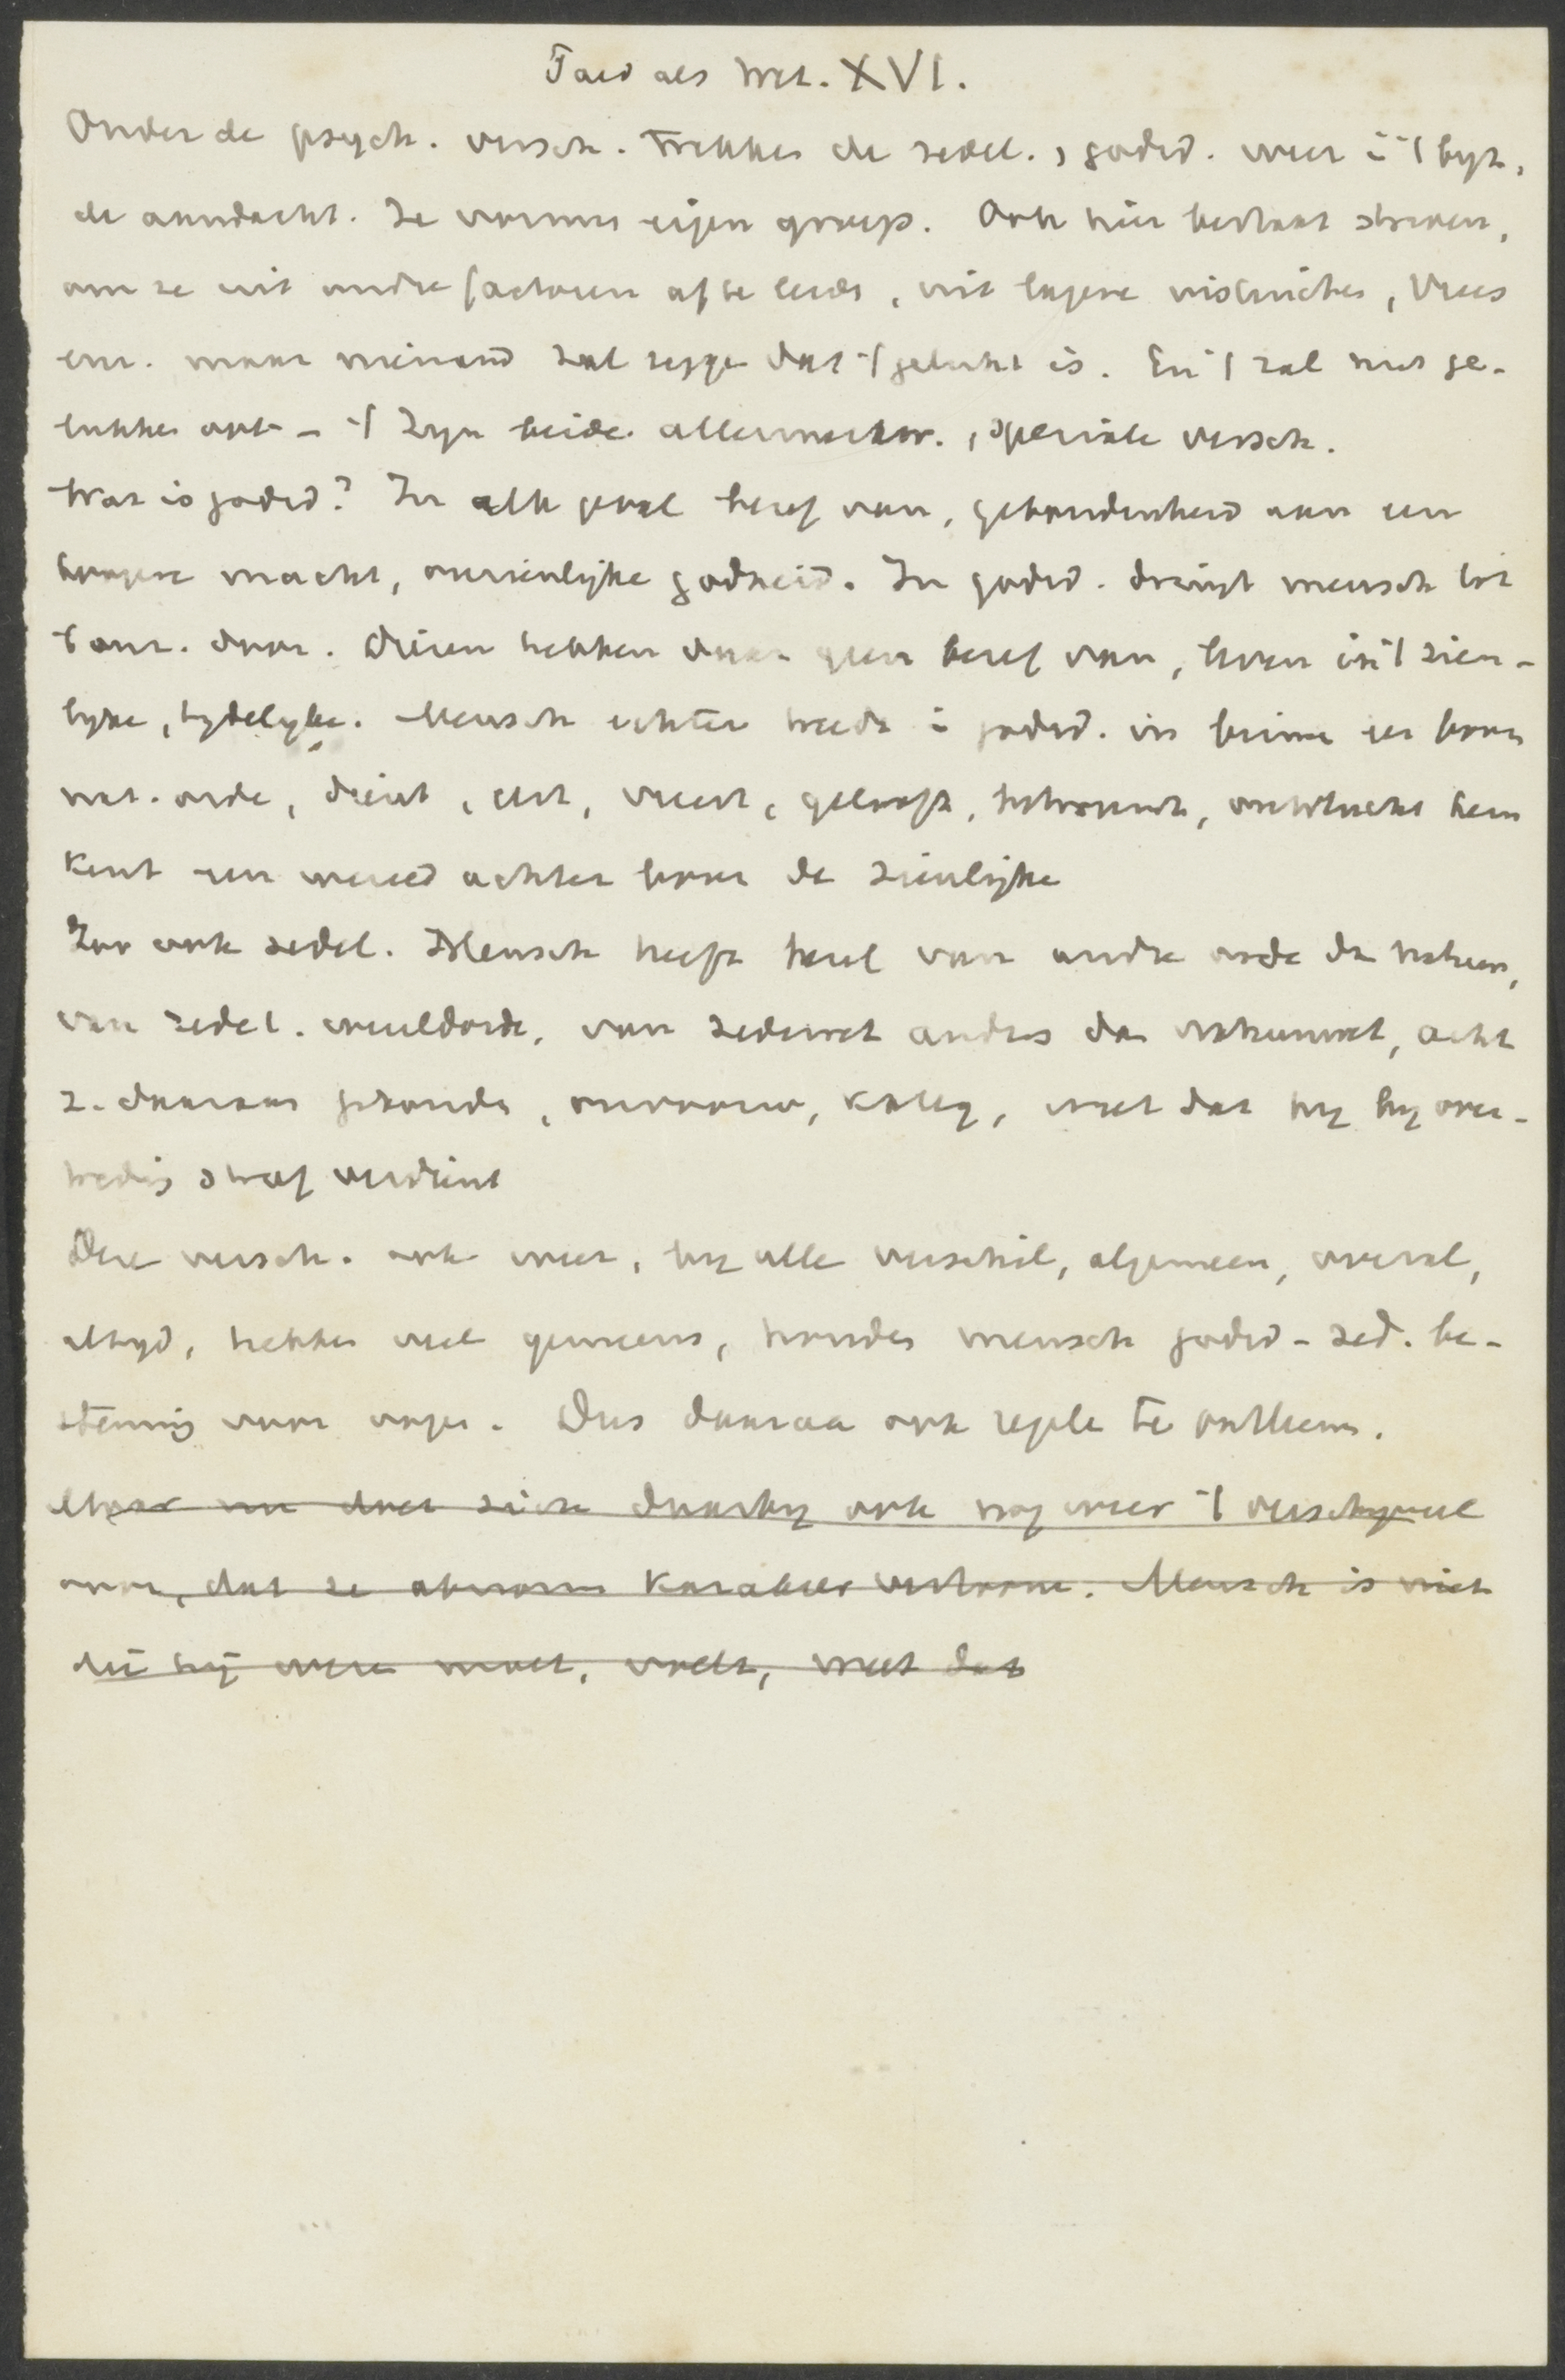 Paed als wet. XVI.
Onder de psych. versch. trekken de zedel., godsd. weer i 't byz.
de aandacht. Ze vormen eigen groep. Ook hier bestaat streven,
om ze uit andre factoren af te leiden, uit lagere instincten, vrees
enz. maar niemand zal zegge dat 't gelukt is. En 't zal niet ge-
lukken ook - 't zyn beide allermerkw., speciale versch.
Wat is godsd? In elk geval besef van, gebondenheid aan een
hoogere macht, onzienlijke godheid. In godsd. dringt mensch tot
t onz. door. Dieren hebben daar geen besef van, leven in 't zien-
lyke, tydelyke. Mensch echter treedt i godsd. in binnen een boven
nat. orde, dient, eert, vreest, gelooft, vertrouwt, hem
kent een wereld achter boven de zienlijke
Zoo ook zedel. Mensch heeft besef van andre orde da natuur,
van zedel. wereldorde, van zedewet anders dan natuurwet, acht
z. daaraan gebonden, weet dat hy by over-
treding straf verdient
Deze versch. ook weer, by alle verschil, algemeen, overal,
altyd, hebben veel gemeens, houden mensch godsd-zed. be-
stemming voor oogen. Dus daaraa ook regele te ontleenen.
Maar nu doet zich daarby ook nog weer 't verschynsel
voor, dat ze abnorm karakter vertoone. Mensch is niet
die hij weze moet, voelt, weet dat